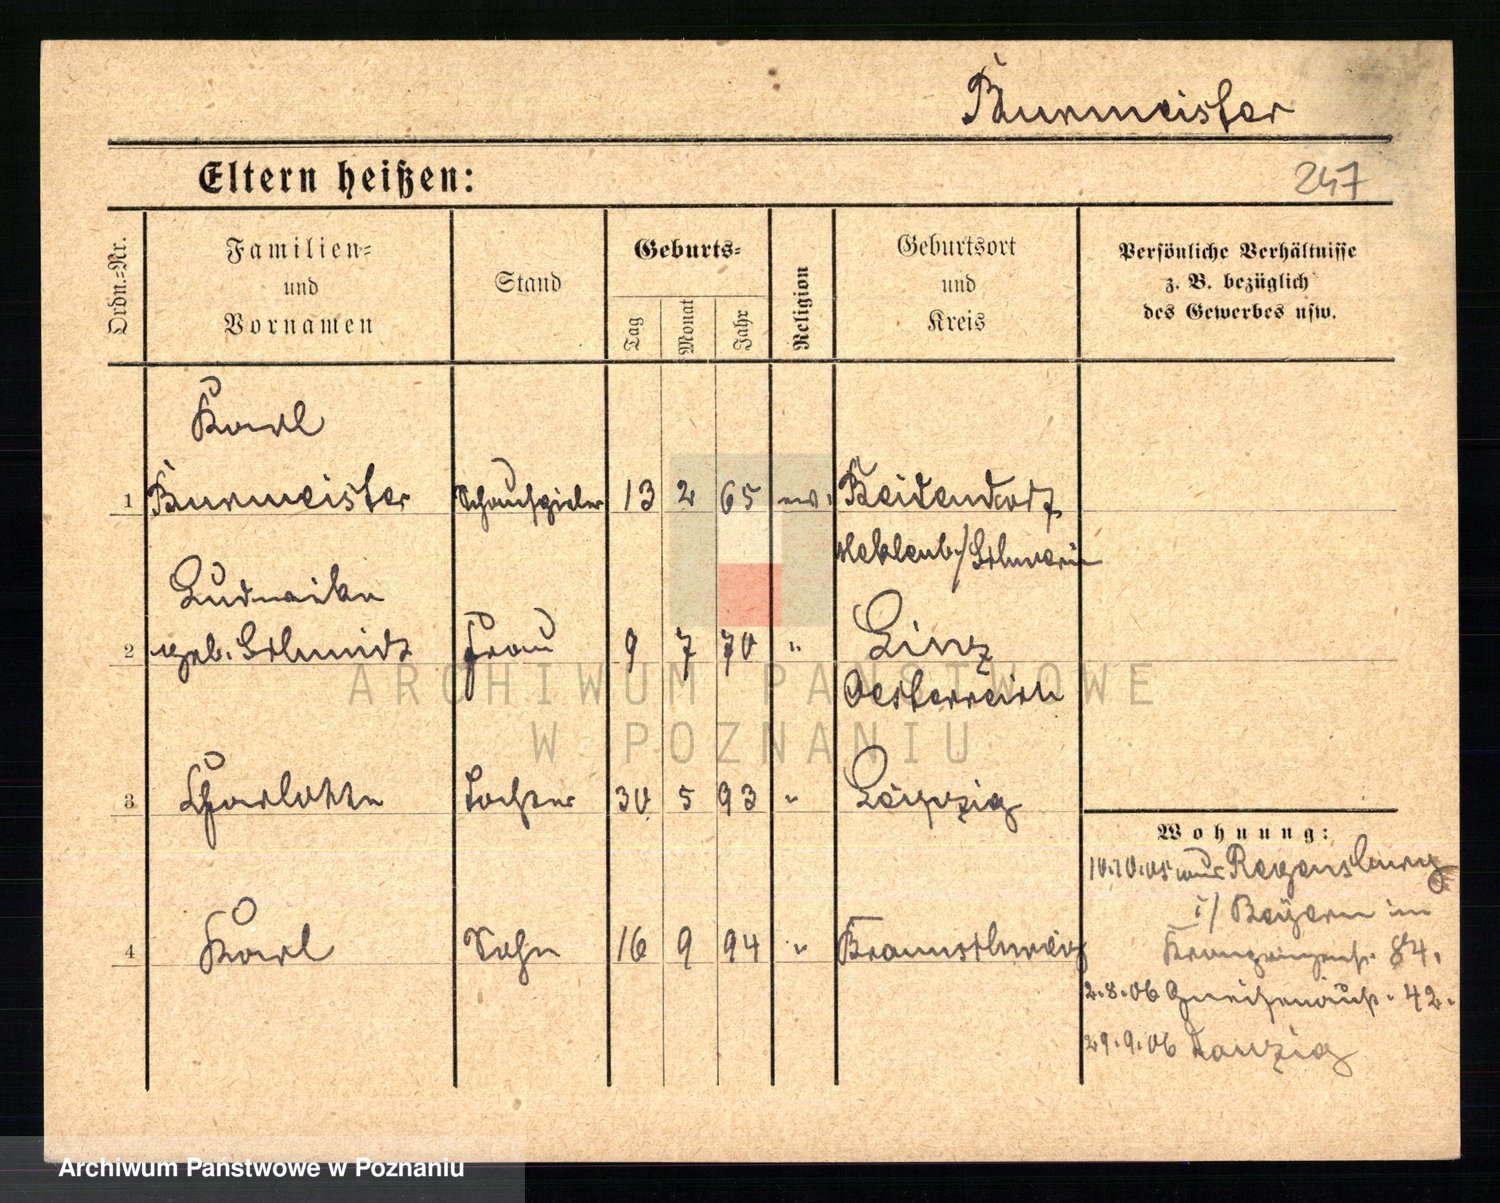 Burmeister
Eltern heißen:
247
Ordn.-Nr.
Familien-
und
Vornamen
Stand
Geburts-
Tag
Monat
Jahr
Religion
Geburtsort
und
Kreis
Persönliche Verhältnisse
z. B. bezüglich
des Gewerbes usw.
Karl
1 Burmeister Schauspieler 13 2 65 Beidendorf
Meklenb/Schwerin
Ludowika
2 geb. Schmidt Frau 9 7 70 " Linz
Oesterreich
3 Charlotte Tochter 30 5 93 " Leipzig
4 Karl Sohn 16 9 94 " Braunschweig
Wohnung:
10.10.05 aus Regensburg
i/ Bayern
84.
2.8.06 Gneisenaustr. 42.
29.9.06 Danzig
ARCHIWUM PAŃSTWOWE
W POZNANIU
Archiwum Państwowe w Poznaniu